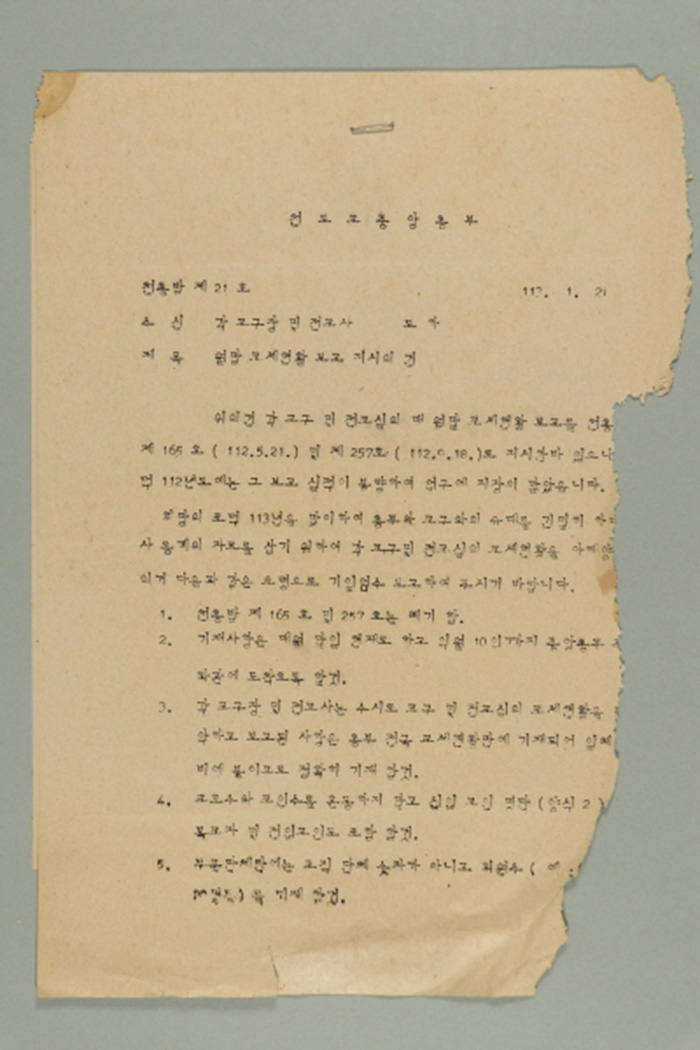 천도교중앙총부
천총발 제 21 호 113. 1. 21
수 신 각 교구장 및 전교사
제 목 월말 교세현황 보고 지시의 건
위의건 각 교구 및 전교실의 매 월말 교세현황 보고를 천총
제 165 호 ( 112.5.21.) 및 제 257호 ( 112.9.18.)로 지시한바 있으나
112년도에는 그 보고 실적이 불량하여 연구에 지장이 많았읍니다.
희망의 포덕 113년을 맞이하여 총부와 교구와의 유대를 긴밀히 하
사 통계의 자료를 삼기 위하여 각 교구및 전교실의 교세현황을
의거 다음과 같은 요령으로 기입엄수 보고하여 주시기 바랍니다.
1. 천총발 제 165 호 및 257 호는 폐기 함.
2. 기재사항은 매월 말일 현재로 하고 익월 10일까지 중앙총부
도착토록 할것.
3. 각 교구장 및 전교사는 수시로 교구 및 전교실의 교세현황을
악하고 보고된 사항은 총부 전국 교세현황판에 기재되어
비에 붙이므로 정확히 기재 할것.
4. 교호수와 교인수를 혼동하지 말고 신입 교인 명단 (양식 2 )
복교자 및 전입교인도 포함 할것.
5. 부문단체란에는 조직 단체 숫자가 아니고 회원수 ( 예 :
) 을 기재 할것.